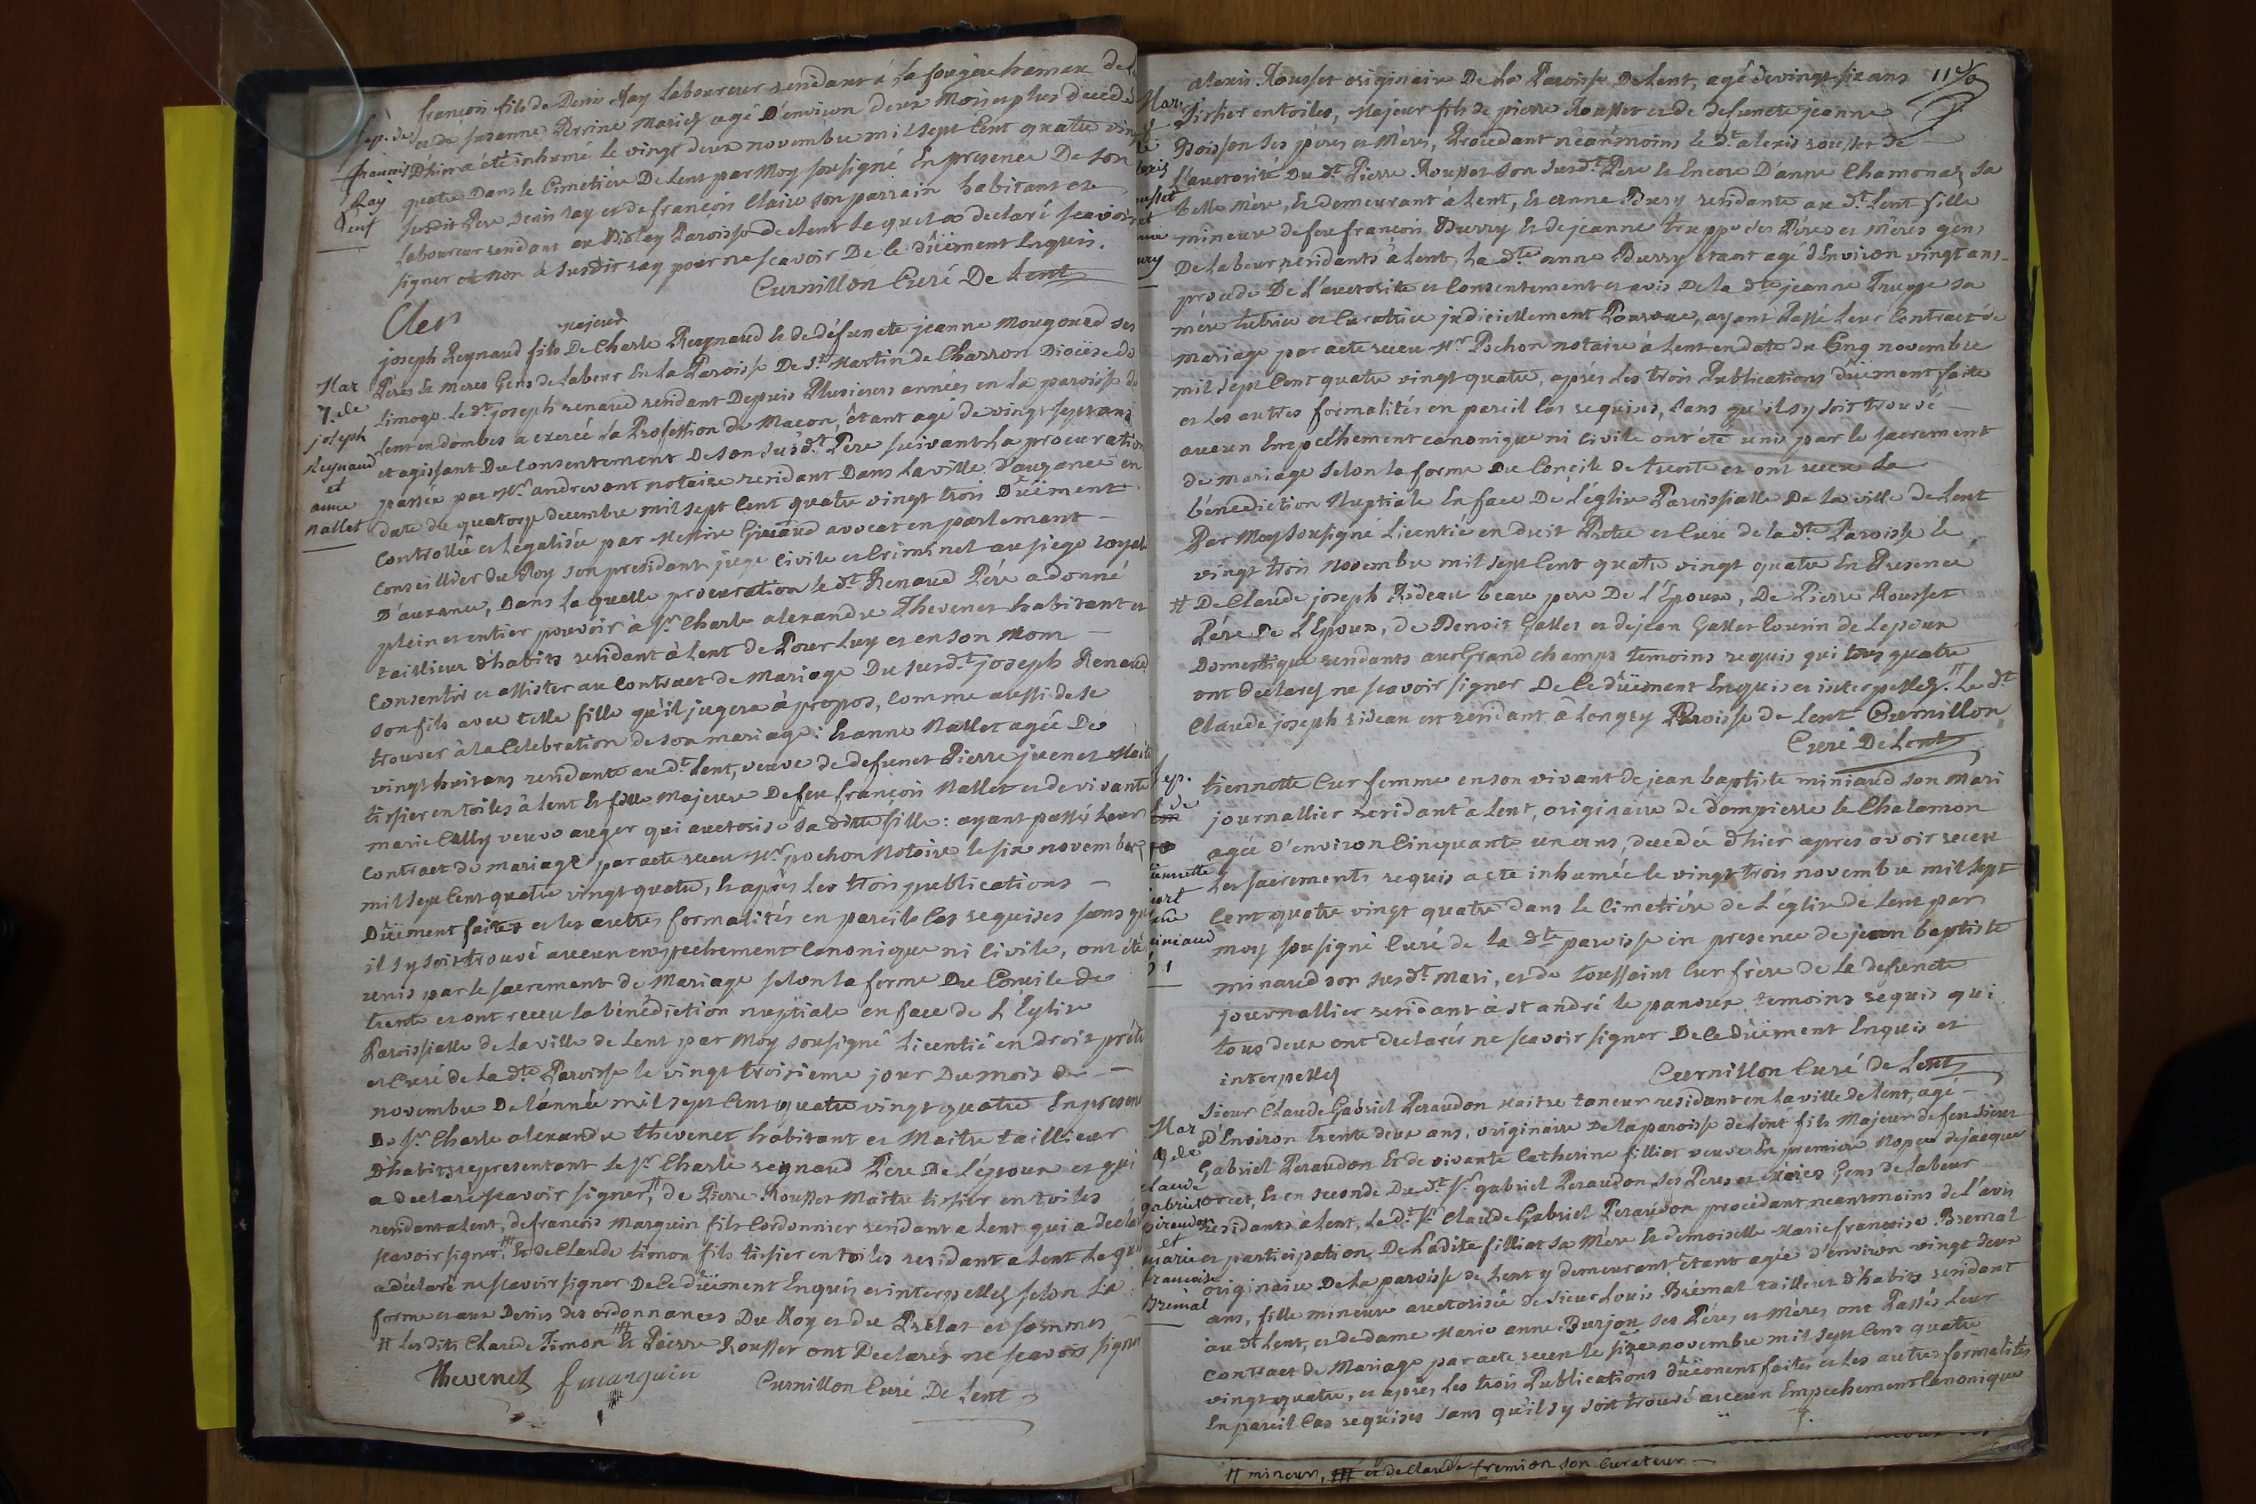 françois fils de Denis Ray laboureur residant à la fougère hameau de
et de suzanne Perrine Mariés agé D'environ deux Mois et plus decedé
D'hier a été inhumé le vingt deux novembre mil sept Cent quatre vingt
quatre Dans le Cimetiere De Lent par Moy soussigné En presence De son
susdit Pere Denis ray et de françois Claire son parrain habitant et
laboureur residant au Paroisse de Lent Lequel a declaré scavoir
signer et non le susdit ray pour ne scavoir De ce düement Enquis.
Curnillon Curé De Lent
Sep. de
françois
Ray
majeur
joseph Reynaud fils De Charle Reynaud et de défuncte jeanne Mougoued ses
Pères et meres Gens de Labeur En la Paroisse De St. Martin de Charron Diocèse de
Limoge. Le dt. joseph renaud residant Depuis Plusieurs années en la paroisse de
Lent en dombes a exercée la Profession de Macon, étant agé de vingt sept ans
et agissant Du Consentement De son susdt. Père suivant la procuration
passée par Me. andrevont notaire residant Dans la ville D'auzance en
date du quatorze decembre mil sept Cent quatre vingt trois Düement
Controllée et Légalisée par Messire Giraud avocat en parlement
Conseiller du Roy son president juge Civile et Criminel au siege royale
D'auzance, Dans laquelle procuration le dt. Renaud Père a donné
plein et entier pouvoir à Sr. Charle alexandre Thevenet habitant et
taillieur d'habits residant à Lent de Pour Luy et en son Nom
Consentir et assister au Contract de Mariage Du susdt. joseph Renaud
son fils avec telle fille qu'il jugera à propos, Comme aussi de se
trouver à la Celebration de son mariage: Et anne Nallet agée De
vingt huit ans residante au dt. Lent, veuve de defunct Pierre juenet Maitre
tissier en toiles à Lent Et fille Majeure De feu françois Nallet et de vivante
marie Cally veuve auger qui auctorise sa ditte fille: ayant passé Leur
Contract de mariage par acte receu Me. pochon Notaire le six novembre
mil sept Cent quatre vingt quatre, Et après Les trois publications
Düement faites et les autres formalités en pareil Cas requises sans qu'
il s'y soit trouvé aucun empechement Canonique ni Civile, ont été
unis par le sacrement de Mariage selon la forme Du Concile de
trente et ont receu la bénédiction nuptiale en face de L'Eglise
Paroissialle de la ville de Lent par Moy soussigné Licentié en Droit prêtre
et Curé de La dte. Paroisse le vingt troisieme jour Du mois de
novembre De l'année mil sept Cent quatre vingt quatre En presence
De Sr. Charle alexandre thevenet habitant et Maitre taillieur
D'habits representant le Sr. Charle reynaud Pere De l'époux et qui
a declaré scavoir signer, # de Pierre Rousset Maitre tissier en toiles
residant a Lent, de francois Marquin fils Cordonnier residant a Lent qui a declaré
scavoir signer, ## Et de Claude timon fils tissier en toiles residant a Lent Lequel
a declaré ne scavoir signer De Ce düement Enquis et interpellés selon La
forme et aux Desirs des ordonnances Du Roy et du Prelat et sommes
# Les dits Claude Timon ## Et Pierre Rousset ont Declarés ne scavoir signer
Thevenet fmarquin Curnillon Curé De Lent
Mar
7. de
joseph
Reynaud
et
anne
nallet
11e
alexis Rousset originaire De La Paroisse De Lent, agé de vingt six ans
Tissier en toiles, Majeur fils de pierre Rousset et de defuncte jeanne
Poisson ses pères et Mères, Procedant néanmoins le dt. alexis rousset de
L'auctorité Du dt. Pierre Rousset son susdt. Pere Et Encore D'anne Chamonaz sa
belle Mère, Et demeurant à Lent, Et anne Bury residante au dt. Lent fille
mineure de feu francois Burry Et de jeanne truppe ses Pères et Mères gens
De Labeur residants à Lent, La dte. anne Burry étant agé d'Environ vingt ans
procede De L'auctorité et Consentement et avis de la dte. jeanne Truppe sa
mère tutrice et Curatrice judiciellement Pourvue, ayant Passé Leur Contract de
mariage par acte receu Mr. Pochon notaire à Lent en date du Cinq novembre
mil sept Cent quatre vingt quatre, après Les trois Publications düement faite
et Les autres formalités en pareil Cas requises, sans qu'il s'y soit trouvé
aucun Empechement canonique ni Civile ont été unis par le sacrement
de mariage selon la forme Du Concile de trente et ont receu La
bénédiction Nuptiale En face De L'église Paroissialle De La ville de Lent
Par Moy soussigné Licentié en droit Prêtre et Curé de la dte. Paroisse le
vingt trois novembre mil sept Cent quatre vingt quatre En Presence
# De Claude joseph Rideau beau pere De L'Epouse, De Pierre Rousset
Père De L'Epoux, de Benoit Gallet et de jean Gallet Cousin de Lepoux
Domestique residants aux Grand champs temoins requis qui tous quatre
ont declarés ne scavoir signer De Ce düement Enquis et interpellés. # Le dt.
Claude joseph rideau est residant à Longry Paroisse de Lent Curnillon
Curé De Lent
tiennette Cur femme en son vivant de jean baptiste miniaud son Mari
journallier residant à Lent, originaire de dompierre le Chalamon
agée d'environ Cinquante un ans, decedée d'hier apres avoir receu
Les sacrements requis a eté inhumée le vingt trois novembre mil sept
Cent quatre vingt quatre dans le Cimetière de L'église de Lent par
moy soussigné Curé de la dte. paroisse en presence de jean baptiste
minaud son susdt. Mari, et de toussaint Cur frère de La defuncte
journallier residant à st andré le panoux temoins requis qui
tous deux ont declarés ne scavoir signer De Ce düement Enquis et
interpellés Curnillon Curé de Lent
Sieur Claude Gabriel Peraudon Maitre taneur residant en La ville de Lent, agé
d'Environ trente deux ans, originaire De La paroisse de Lent fils Majeur de feu sieur
Gabriel Peraudon Et de vivante Catherine filliat veuve En premiere Nopce de jacque
orcet, Et en seconde Du dt. Sr. gabriel Peraudon, ses Peres et Meres Gens de Labeur
residants à Lent, Le dt. Sr. Claude Gabriel Peraudon procédant neantmoins de l'avis
et participation De Ladite filliat sa Mere Et demoiselle Marie francoise Bremal
originaire De La paroisse de Lent y demeurant étant agée d'environ vingt deux
ans, fille mineure auctorisée de sieur Louis Brémal tailleur d'habits residant
au dt. Lent, et de dame Marie anne Burjou ses Pères et Meres ont Passés Leur
Contract de Mariage par acte receu le six novembre mil sept Cent quatre
vingt quatre, et après Les trois Publications düement faites et Les autres formalités
En pareil Cas requises sans qu'il s'y soit trouvé aucun Empechement Canonique
Mar
9 de
claude
gabriel
peraudon
et
marie
francoise
Bremal
# mineur, ## et de Claude fremion son Curateur